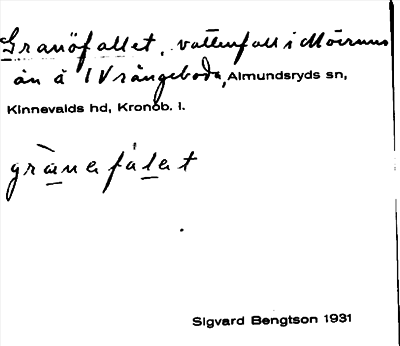 Granöfallet, vattenfall i Mörrums
ån å 1 Vrångeboda, Almundsryds sn,
Kinnevalds hd, Kronob. l.
gràne fálet
Sigvard Bengtson 1931